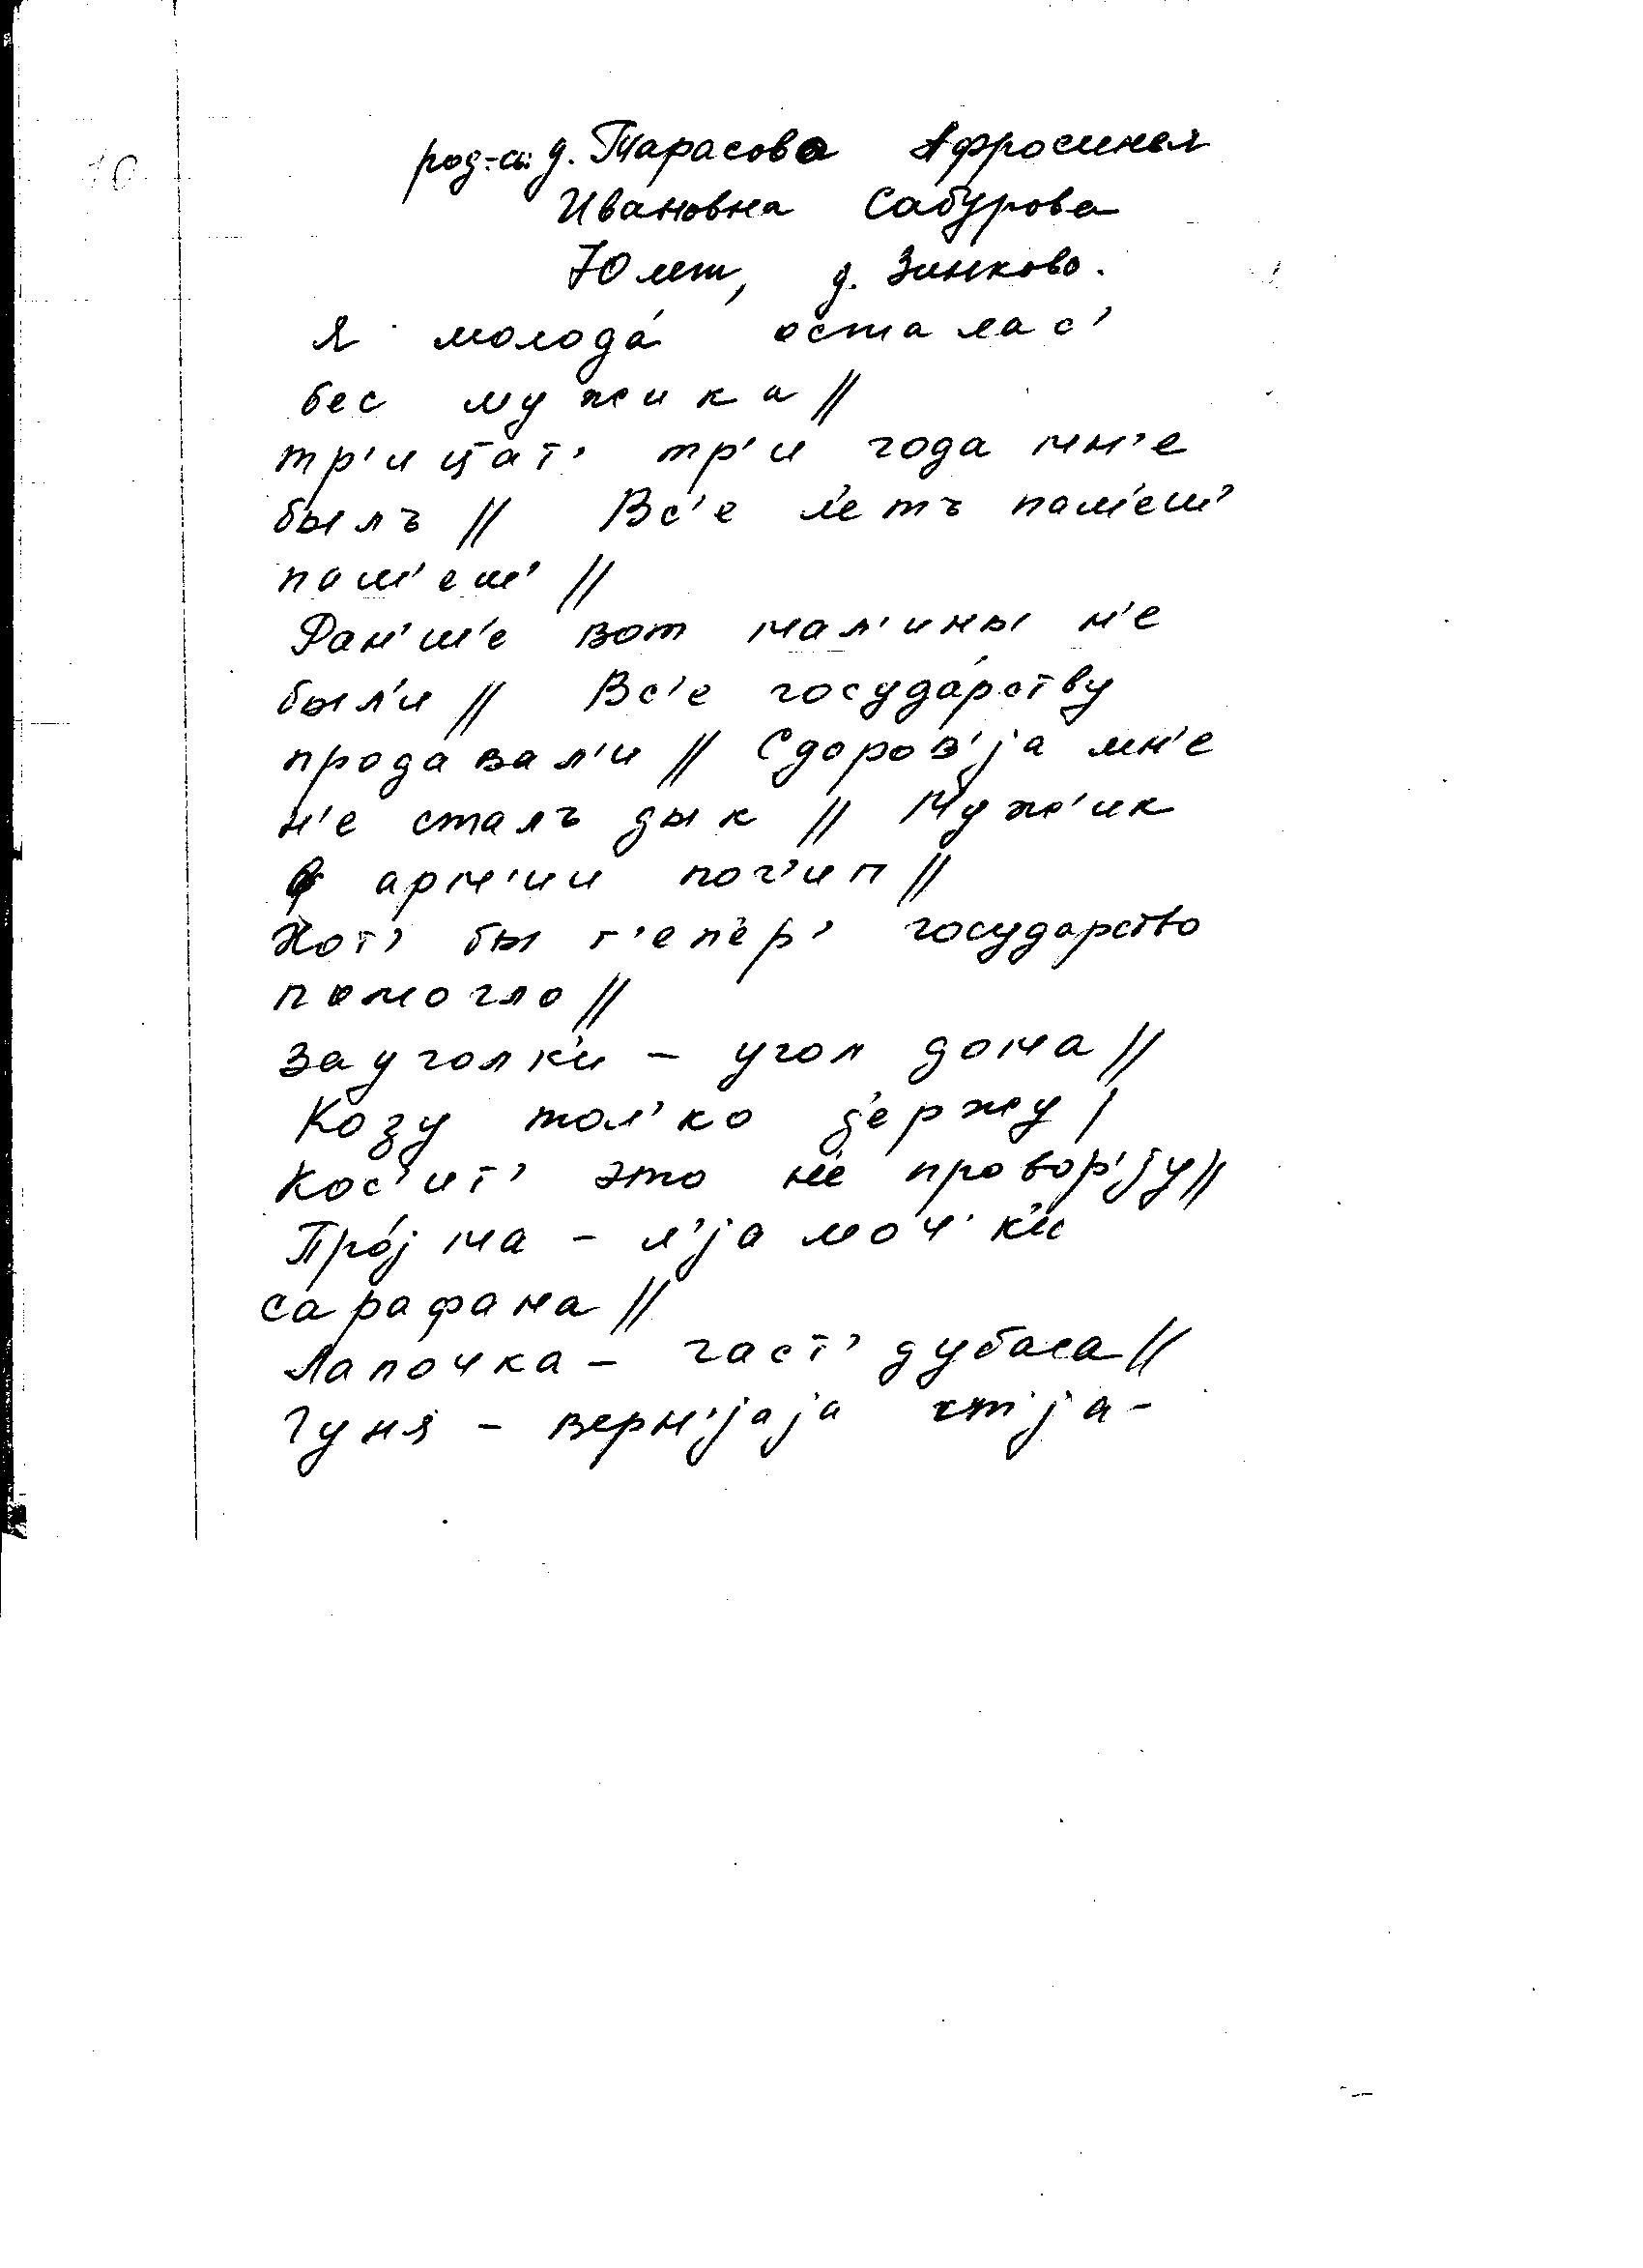 10
род-сь д. Тарасово Афросинья
Ивановна Сабурова
70 лет, д. Зинково.
Я молода́ осталас'
бес мужика //
тр'ицат' тр'и года мн'е
былъ // Вс'е л'етъ
//
Ран'ш'е вот мал'ины н'е
был'и // Вс'е госуда́рству
продавал'и // Сдоров'jа мн'е
н'е сталъ дык // Муж'ик
в арм'ии пог'ип //
Хот' бы т'епер' государство
помогло //
Зауголк'и – угол дома //
Козу тол'ко д'ержу /
Кос'ит' это н'е проворjу //
Про́jма – л'jамочк'и
сарафана //
Лапочка – част' дубаса //
Гуня – верн'jаjа